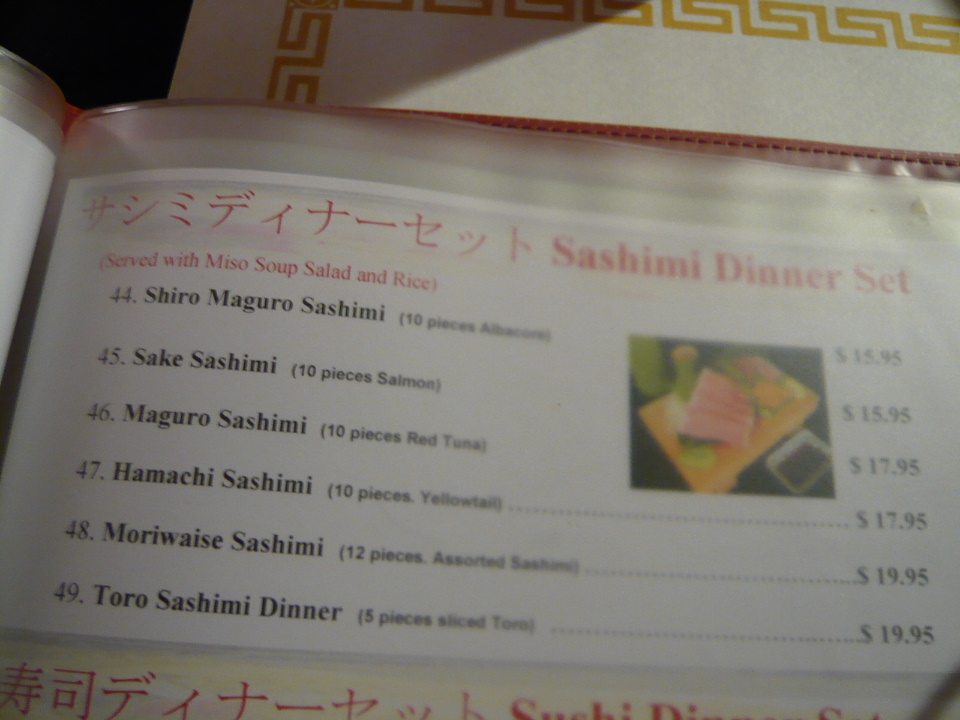 サシミディナーセット Sashimi Dinner Set
(Served with Miso Soup Salad and Rice)
44. Shiro Maguro Sashimi (10 pieces Albacore) $ 15.95
45. Sake Sashimi (10 pieces Salmon) $ 15.95
46. Maguro Sashimi (10 pieces Red Tuna) $ 17.95
47. Hamachi Sashimi (10 pieces. Yellowtail) $ 17.95
48. Moriwaise Sashimi (12 pieces. Assorted Sashimi) $ 19.95
49. Toro Sashimi Dinner (5 pieces sliced Toro) $ 19.95
寿司ディナーセット Sushi Dinner Set